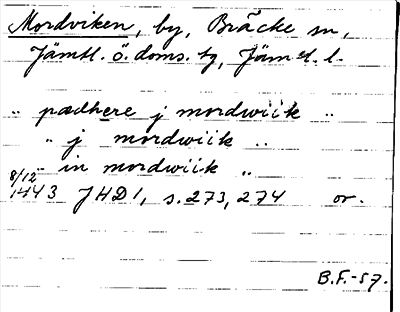 Mordviken, by, Bräcke sn,
Jämtl. ö. doms. tg, Jämtl. l.
„ pædhere j mordwiik „
„ j mordwiik „
„ in mordwiik „
8/12 1443 JHD1, s. 273, 274 or.
B.F.-57.